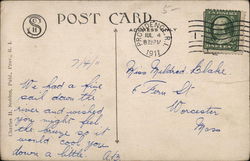 5-
POST CARD
PROVIDENCE, R.I.
JUL 4
8:30 PM
1911
ADDRESS
7/4/11
Miss Mildred Blake
6 Fern St
Worcester
Mass
We had a fine
sail down the
river and wished
you might feel
the breeze so it
would cool you
down a little.
Charles H. Seddon, Publ., Prov., R. I.